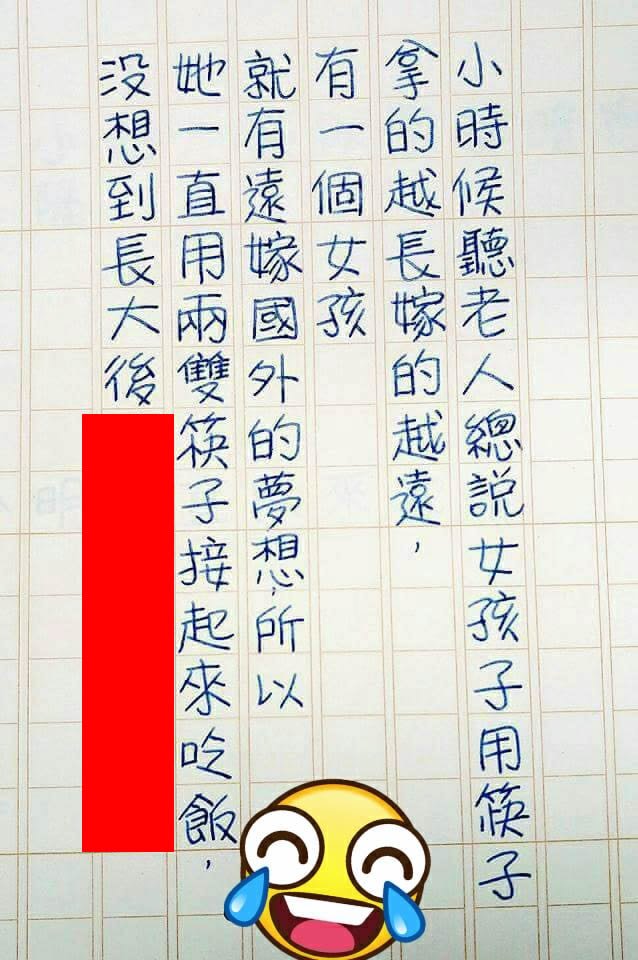 小時候聽老人總説女孩子用筷子
拿的越長嫁的越遠，
有一個女孩
就有遠嫁國外的夢想，所以
她一直用兩雙筷子接起來吃飯，
没想到長大後